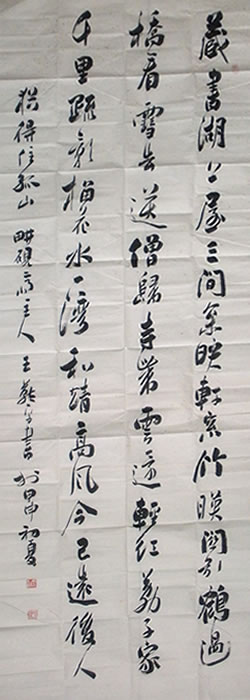 藏書湖上屋三间窠映軒窓竹暎関引鶴過
橋看雪去送僧歸寺帶雲還輕红荔子家
千里疏影梅花水一湾和靖高风今已遠後人
猶得住孤山 畊硯齋主人 王 書 於甲申初夏